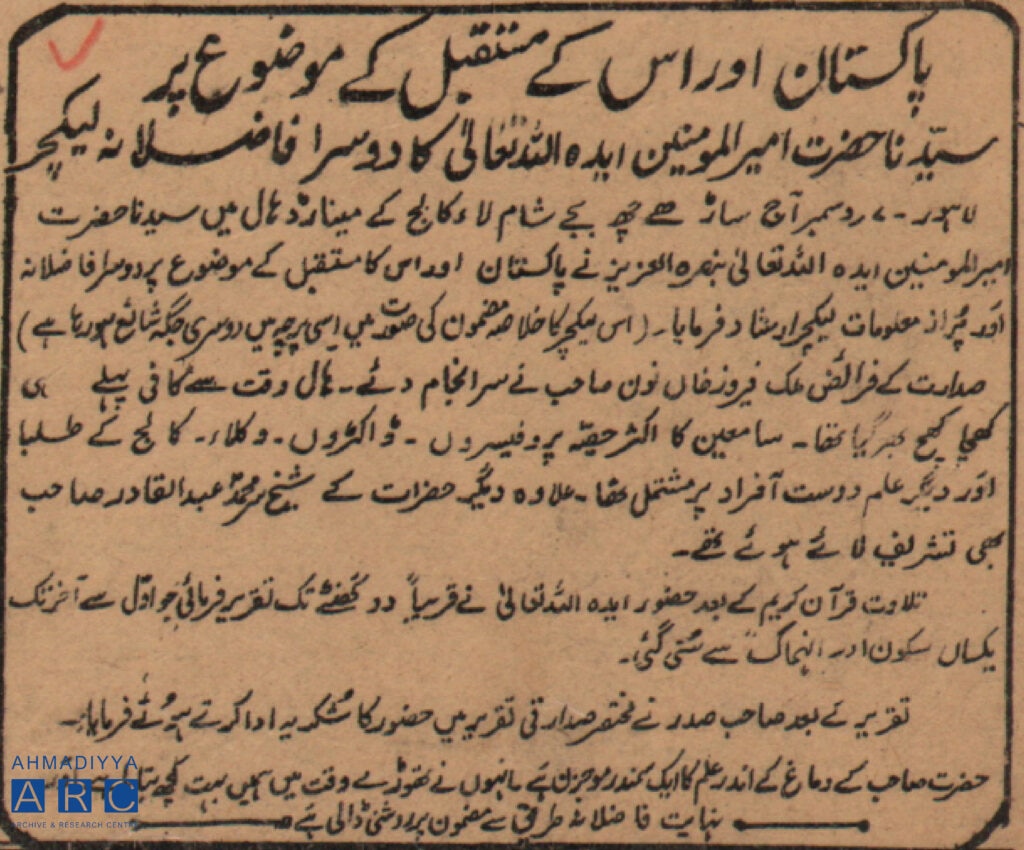 پاکستان اور اس کے مستقبل کے موضوع پر
سیّدنا حضرت امیر المومنین ایدہ اللہ تعالیٰ کا دوسرا فاضلانہ لیکچر
لاہور۔ ۷ دسمبر آج ساڑھے چھ بجے شام لاء کالج کے مینارڈ ہال میں سیدنا حضرت
امیر المومنین ایدہ اللہ تعالیٰ بنصرہ العزیز نے پاکستان اور اس کا مستقبل کے موضوع پر دوسرا فاضلانہ
اور پُر از معلومات لیکچر ارشاد فرمایا۔ (اس لیکچر کا خلاصہ مضمون کی صورت میں اسی پرچہ میں دوسری جگہ شائع ہو رہا ہے)
صدارت کے فرائض ملک فیروز خاں نون صاحب نے سرانجام دئے۔ ہال وقت سے کافی پہلے ہی
کھچا کھچ بھر گیا تھا۔ سامعین کا اکثر حصّہ پروفیسروں۔ ڈاکٹروں۔ وکلاء۔ کالج کے طلبا
اور دیگر علم دوست افراد پر مشتمل تھا۔ علاوہ دیگر حضرات کے شیخ سر محمد عبدالقادر صاحب
بھی تشریف لائے ہوئے تھے۔
تلاوت قرآن کریم کے بعد حضور ایدہ اللہ تعالیٰ نے قریباً دو گھنٹے تک تقریر فرمائی جو اوّل سے آخر تک
یکساں سکون اور انہماک سے سُنی گئی۔
تقریر کے بعد صاحب صدر نے مختصر صدارتی تقریر میں حضور کا شکریہ ادا کرتے ہوئے فرمایا۔
حضرت صاحب کے دماغ کے اندر علم کا ایک سمندر موجزن ہے۔ انہوں نے تھوڑے وقت میں ہمیں بہت کچھ بتایا ہے اور
نہایت فاضلانہ طریق سے مضمون پر روشنی ڈالی ہے
AHMADIYYA
ARC
ARCHIVE & RESEARCH CENTRE